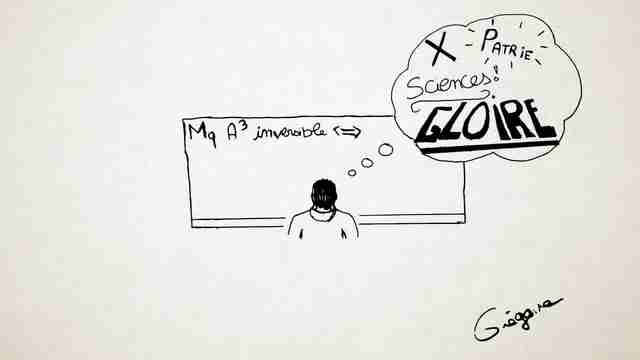 X - PATRIE -
Sciences!
GLOIRE
Mq A³ inversible <=>
Grégoire